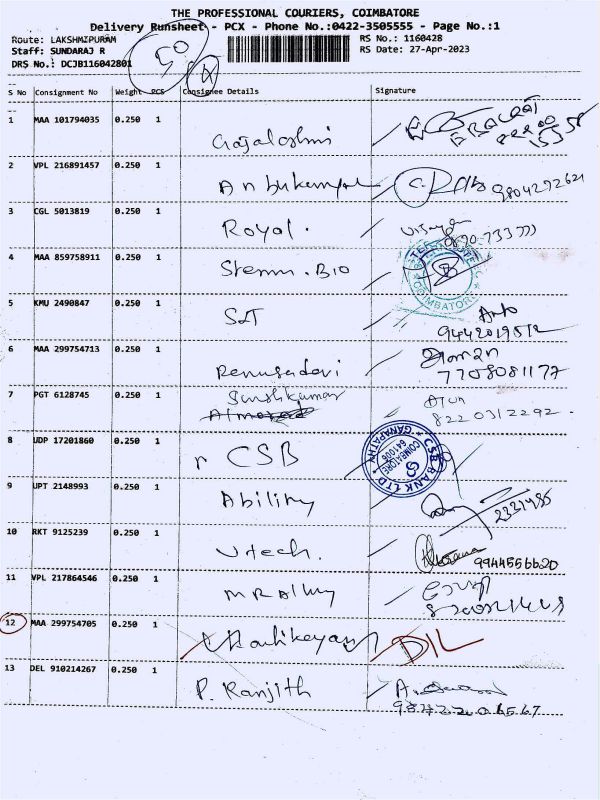 THE PROFESSIONAL COURIERS, COIMBATORE
Delivery Runsheet - PCX - Phone No.:0422-3505555 - Page No.:1
Route: LAKSHMIPURAM RS No.: 1160428
Staff: SUNDARAJ R RS Date: 27-Apr-2023
DRS No.: DCJB116042801
50
S No Consignment No Weight PCS Consignee Details Signature
1 MAA 101794035 0.250 1 Gajalashmi
2 VPL 216891457 0.250 1 9804272621
3 CGL 5013819 0.250 1 Royal.
4 MAA 859758911 0.250 1 Stemm. Bio
COIMBATORE
5 KMU 2490847 0.250 1 SIT Anto
9442019512
6 MAA 299754713 0.250 1 Renugadevi
7708081177
7 PGT 6128745 0.250 1 Sunshkumar
8220312292.
8 UDP 17201860 0.250 1 CSB
CSB BANK LTD * GANAPATHY *
COIMBATORE 641006
9 UPT 2148993 0.250 1 Ability
10 RKT 9125239 0.250 1 Vtech. 9944556620
11 VPL 217864546 0.250 1
12 MAA 299754705 0.250 1 Karthikeyan DIL
13 DEL 910214267 0.250 1 P. Ranjith